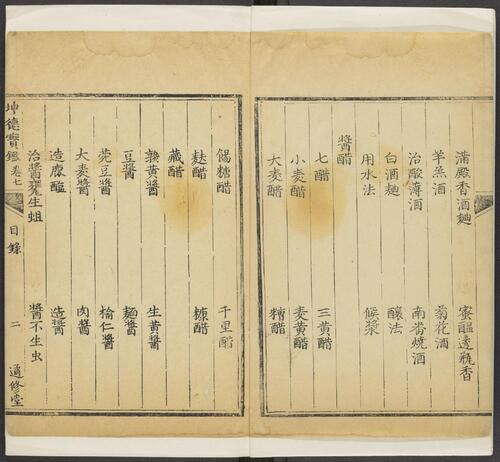 滿殿香酒麯 蜜醞透瓶香
羊羔酒 菊花酒
治酸薄酒 南番燒酒
白酒麯 釀法
用水法 候漿
醬醋
七醋 三黃醋
小麥醋 麥黃醋
大麥醋 糟醋
餳糖醋 千里醋
麩醋 糠醋
藏醋
熟黃醬 生黃醬
豆醬 麵醬
豌豆醬 榆仁醬
大麥醬 肉醬
造鹿醢 造醬
治醬甕生蛆 醬不生虫
坤德寶鑑 卷七 目錄 二 通修堂